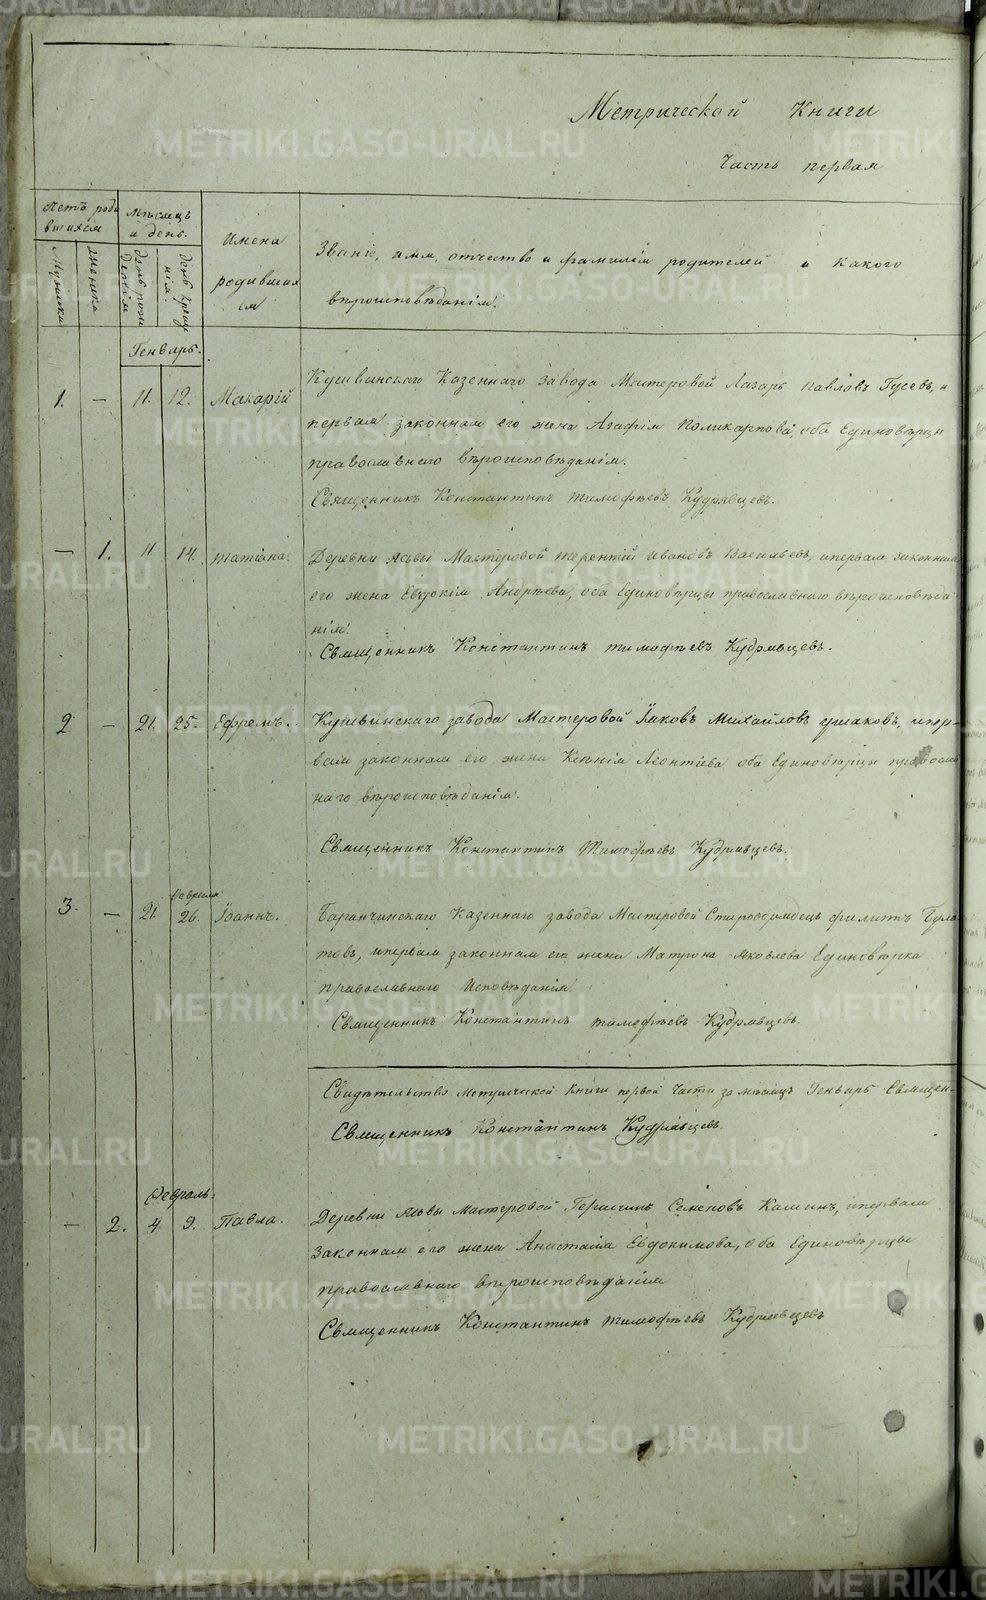 Метрической Книги
Часть первая
Счетъ роди
вшихся
Мѣсяцъ
и день.
Имена
родивших
ся
Званіе, имя, отчество и фамилія родителей и какого
вѣроисповѣданія.
Мужеска
женска
день рож
денія
день креще
нія.
Генварь.
1. — 11. 12. Макарій
Кушвинскаго Казеннаго завода Мастеровой Лазарь Павловъ Гусевъ, и
первая законная его жена Агафія Поликарпова, оба Единовѣрцы
православнаго вѣроисповѣданія.
Священникъ Константинъ Тимофѣевъ Кудрявцевъ.
— 1. 11 14. Татіана.
Деревни Ясьвы Мастеровой Терентій Ивановъ Васильевъ, ипервая законная
его жена Евдокія Андрѣева, оба Единовѣрцы православнаго вѣроисповѣда
нія.
Священникъ Константинъ Тимофѣевъ Кудрявцевъ.
2 — 21. 25. Ефремъ.
Кушвинскаго завода Мастеровой Іаковъ Михайловъ Ушаковъ, ипер-
вая законная его жена Ксенія Леонтіева оба Единовѣрцы православ
наго вѣроисповѣданія.
Священникъ Константинъ Тимофѣевъ Кудрявцевъ.
Февраля
3. — 21. 26. Іоаннъ.
Баранчинскаго Казеннаго завода Мастеровой Старообрядецъ Филипъ Була
товъ, ипервая законная его жена Матрона Яковлева Единовѣрка
православнаго Исповѣданія
Священникъ Константинъ Тимофѣевъ Кудрявцевъ.
Свидѣтельство Метрической Книги первой Части за мѣсяцъ Генварь Священ-
Священникъ Константинъ Кудрявцевъ
Февраль.
— 2. 4 9. Павла.
Деревни Ясьвы Мастеровой Герасимъ Семеновъ Кашинъ, ипервая
Законная его жена Анастасія Евдокимова, оба Единовѣрцы
православнаго вѣроисповѣданія
Священникъ Константинъ Тимофѣевъ Кудрявцевъ
METRIKI.GASO-URAL.RU